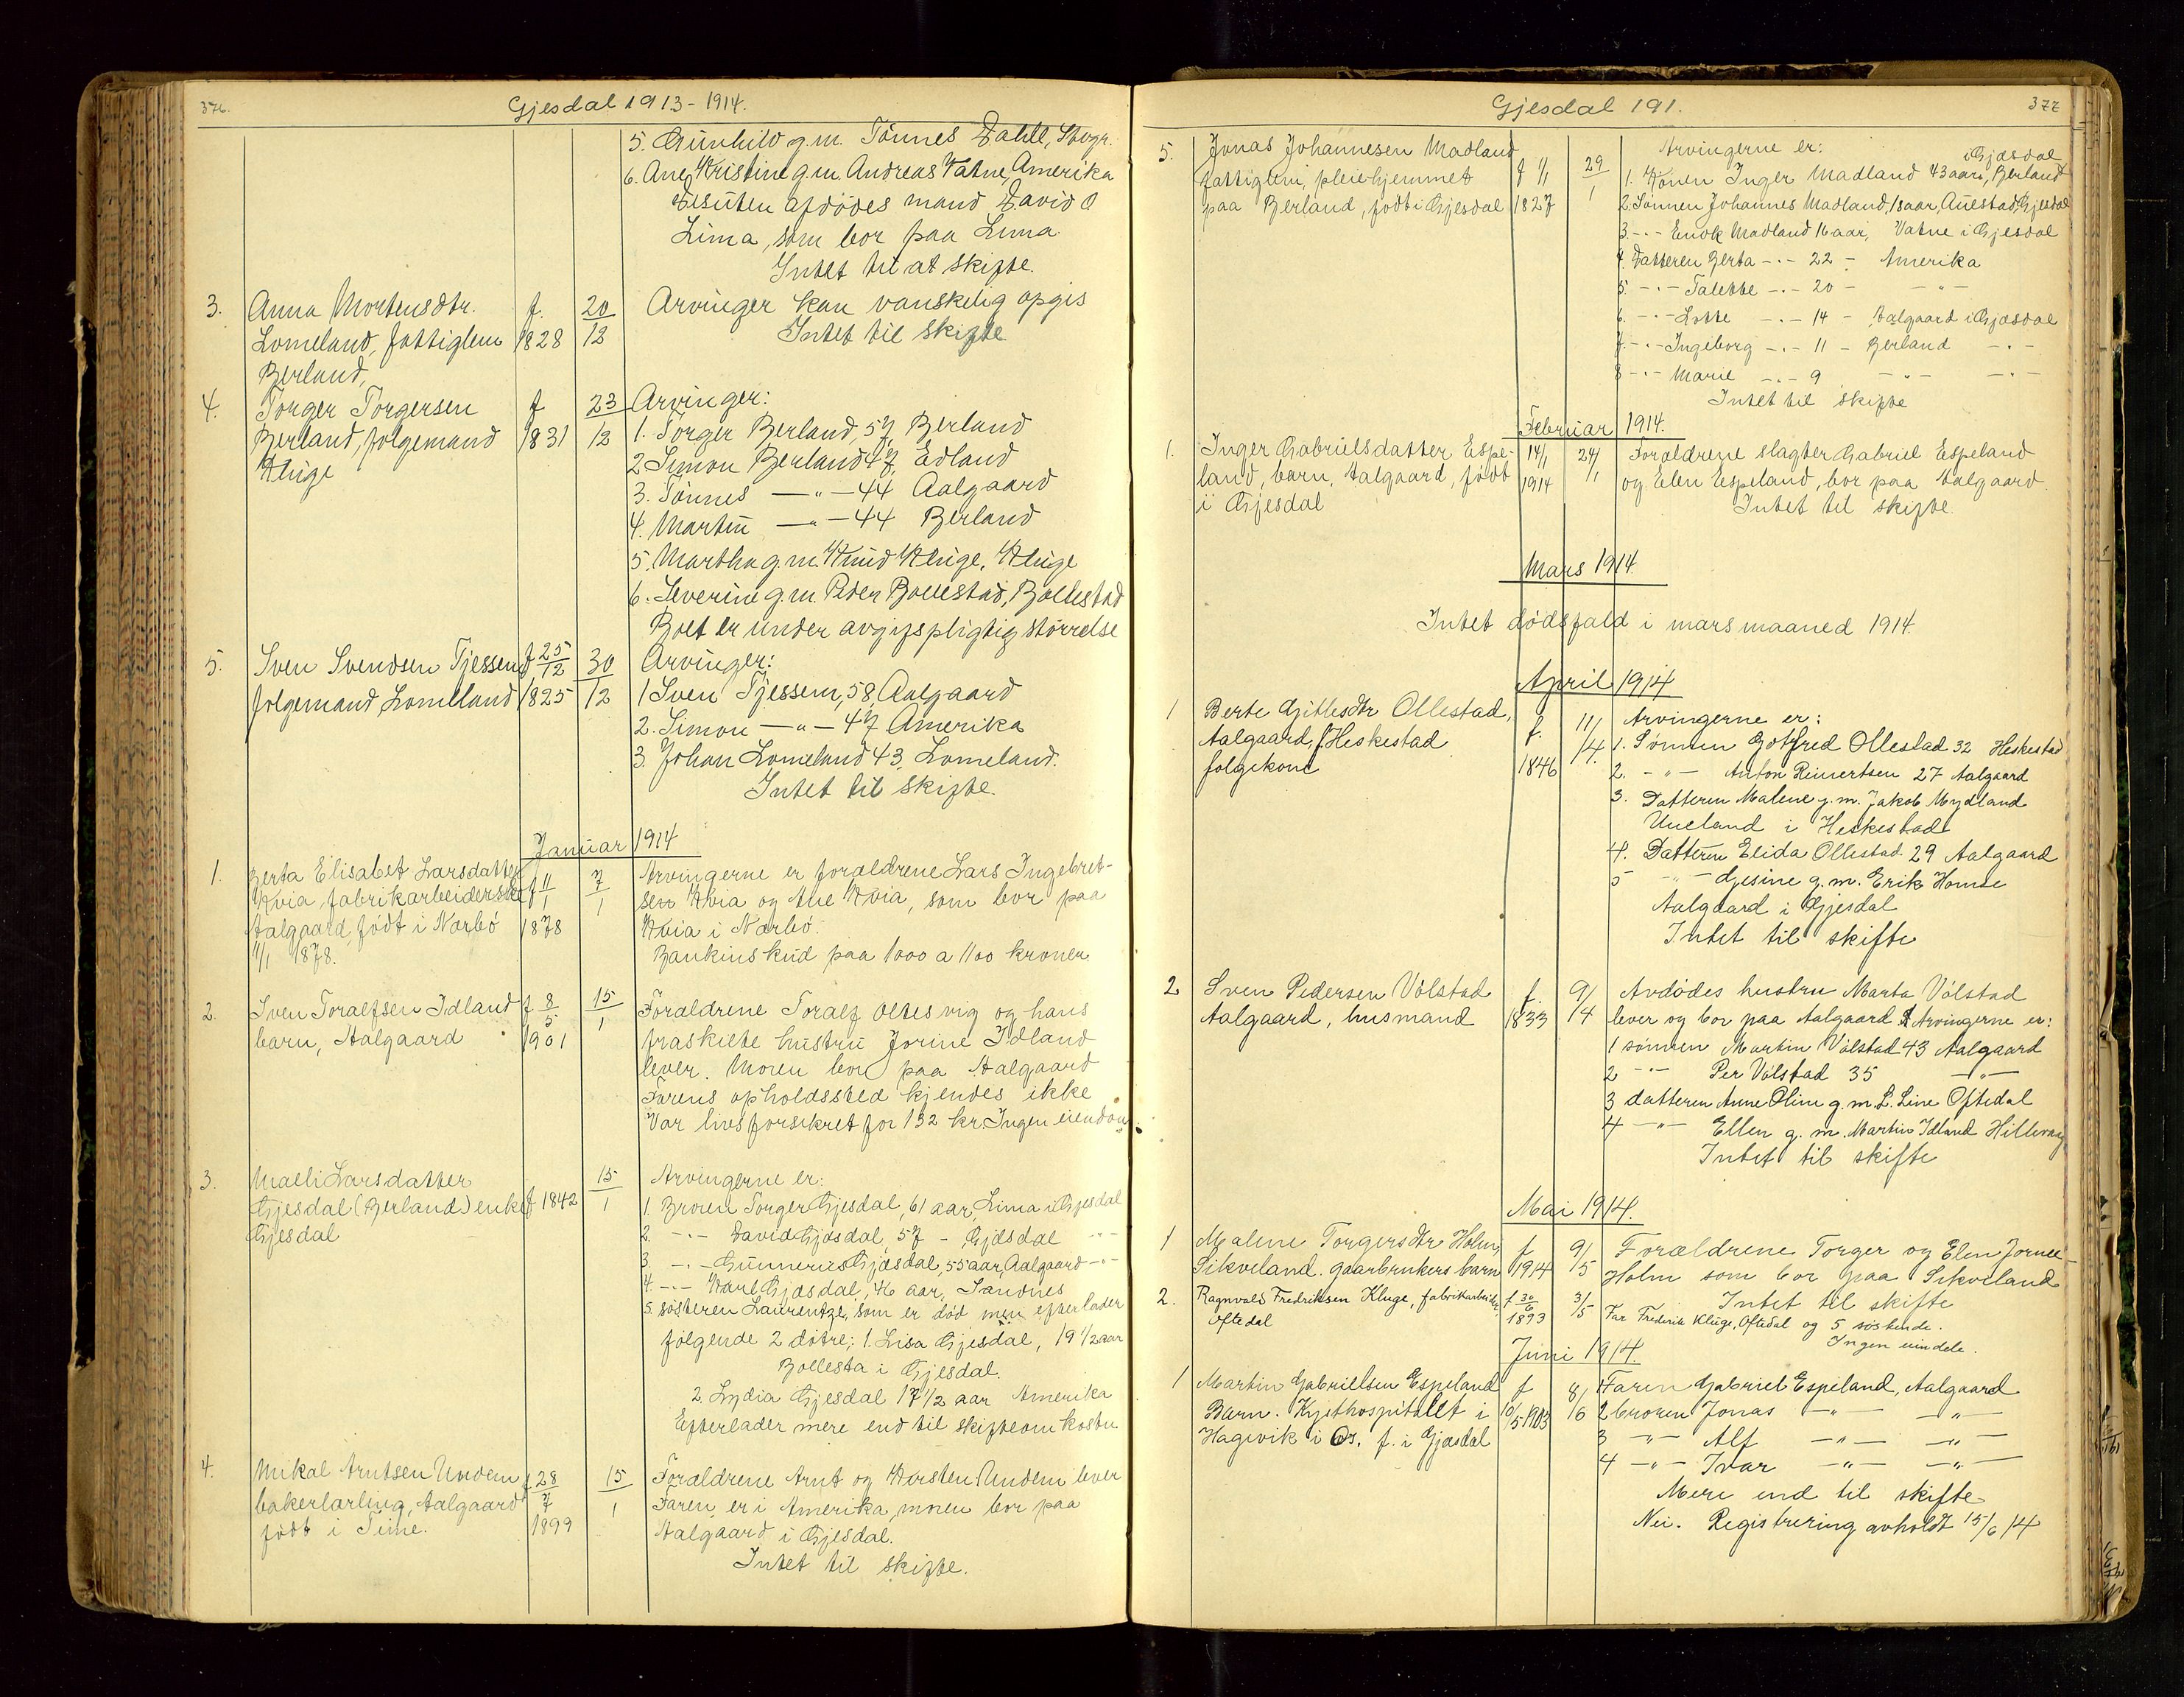 376.
Gjesdal 1913-1914.
5. Gunhild g.m. Tönnes Dahle,
6. Ane Kristine g.m. Andreas Vatne, Amerika
Desuten afdödes mand David O
Lima, som bor paa Lima.
Intet til at skifte.
3. Anna Mortensdtr. f. 20 Arvinger kan vanskelig opgis
Lomeland, fattiglem 1828 12 Intet til skifte
Berland,
4. Torger Torgersen f 23 Arvinger:
Berland, folgemand 1831 12 1. Torger Berland, 57, Berland
Kluge 2. Simon Berland 47, Edland
3. Tönnes —"— 44 Aalgaard
4. Martin —"— 44 Berland
5. Martha g.m. Knud Kluge, Kluge
6. Severine g.m. Peder Bollestad, Bollestad
Boet er under avgifspligtig störrelse
5. Sven Svendsen Tjessem f 25/12 30 Arvinger:
folgemand Lomeland 1825 12 1 Sven Tjessem, 58, Aalgaard
2. Simon —"— 47 Amerika
3. Johan Lomeland 43, Lomeland.
Intet til skifte.
Januar 1914
1. Berta Elisabet Larsdatter f 11 7 Arvingerne er foraldrene Lars Ingebret-
Kvia, fabrikarbeiderske 1 1 sen Kvia og Ane Kvia, som bor paa
Aalgaard, födt i Narbö 1878 Kvia i Narbö.
11/1 1878. Bankinskud paa 1000 a 1100 kroner.
2. Sven Toralfsen Idland f 8 15 Foraldrene Toralf Oltesvig og hans
barn, Aalgaard 5 1 fraskilte hustru Jorine Idland
1901 lever. Moren bor paa Aalgaard
Farens opholdssted kjendes ikke
Var livsforsikret for 132 kr. Ingen eiendom.
3. Malli Larsdatter 15 Arvingerne er:
Gjesdal (Berland) enke f 1842 1 1. Broren Torger Gjesdal, 61 aar, Lima i Gjesdal
Gjesdal 2. -"- David Gjosdal, 57 - Gjesdal -"-
3. -"- Gunnerius Gjosdal, 55 aar, Aalgaard -"-
4. -"- Karl Gjosdal, 46 aar, Sandnes
5. sösteren Laurentze, som er död men efterlader
fölgende 2 dötre: 1. Lisa Gjesdal, 19 1/2 aar
Bollesta i Gjesdal.
2 Lydia Gjesdal 17 1/2 aar Amerika
Efterlader mere end til skifteomkostn
4. Mikal Arntsen Undem f 28 15 Foraldrene Arnt og Karsten Undem lever
bakerlærling, Aalgaard 7 1 Faren er i Amerika, moren bor paa
födt i Time. 1899 Aalgaard i Gjesdal.
Intet til skifte.
377
Gjesdal 191.
5. Jonas Johannesen Madland Arvingerne er: i Gjesdal
fattiglem, pleiehjemmet f 1/1 29 1. Konen Inger Madland 43 aar, Berland
paa Berland, födt i Gjesdal 1827 1 2. Sönnen Johannes Madland, 18 aar, Auestad, Gjesdal
3 -"- Enok Madland 16 aar, Vatne i Gjesdal
4. Datteren Berta -"- 22 - Amerika
5. -"- Talette -"- 20 - -"-
6. -"- Lotte -"- 14 - Aalgaard i Gjesdal
7. -"- Ingeborg -"- 11 - Berland -"-
8 -"- Marie -"- 9 -"- -"-
Intet til skifte
Februar 1914.
1. Inger Gabrielsdatter Espe- 14/1 24/ Foraldrene slagter Gabriel Espeland
land, barn, Aalgaard, födt 1914 1 og Elen Espeland, bor paa Aalgaard
i Gjesdal Intet til skifte.
Mars 1914.
Intet dödsfald i mars maaned 1914.
April 1914
1 Berte Gitlesdtr Ollestad, f. 11/ Arvingerne er:
Aalgaard, f Heskestad 14. 1. Sönnen Gotfred Ollestad 32 Heskestad
folgekone 1846 2. -"- Anton Reinertsen 27 Aalgaard
3. Datteren Malene g.m. Jakob Mydland
Ueland i Heskestad
4. Datteren Elida Ollestad 29 Aalgaard
5 -"- Gjesine g.m. Erik Homse
Aalgaard i Gjesdal
Intet til skifte
2 Sven Pedersen Völstad f. 9/ Avdödes hustru Marta Völstad
Aalgaard, husmand 1833 /4 lever og bor paa Aalgaard. Arvingerne er:
1 sönnen Martin Völstad 43 Aalgaard
2 -"- Per Völstad 35 —"—
3 datteren Anne Oline g.m. L. Line Oftedal
4 -"- Ellen g.m. Martin Idland Hillevag
Intet til skifte
Mai 1914.
1 Malene Torgersdtr Holm, f 9/ Forældrene Torger og Elen Jornee
Sikveland. gaarbrukers barn 1914 5 Holm som bor paa Sikveland
Intet til skifte
2. Ragnvald Fredriksen Kluge, fabrikarbeider, f 30/6 3/5 Far Frederik Kluge, Oftedal og 5 söskende.
Oftedal 1893 Ingen eiendele.
Juni 1914.
1 Martin Gabrielsen Espeland f 8/ 1 Faren Gabriel Espeland, Aalgaard
Barn. Kysthospitalet i 6/5 1903 16 2 broren Jonas —"— —"—
Hagevik i Os. f. i Gjesdal 3 -"- Alf —"— —"—
4 -"- Ivar —"— —"—
Mere end til skifte
Nei. Registrering avholdt 15/6 14